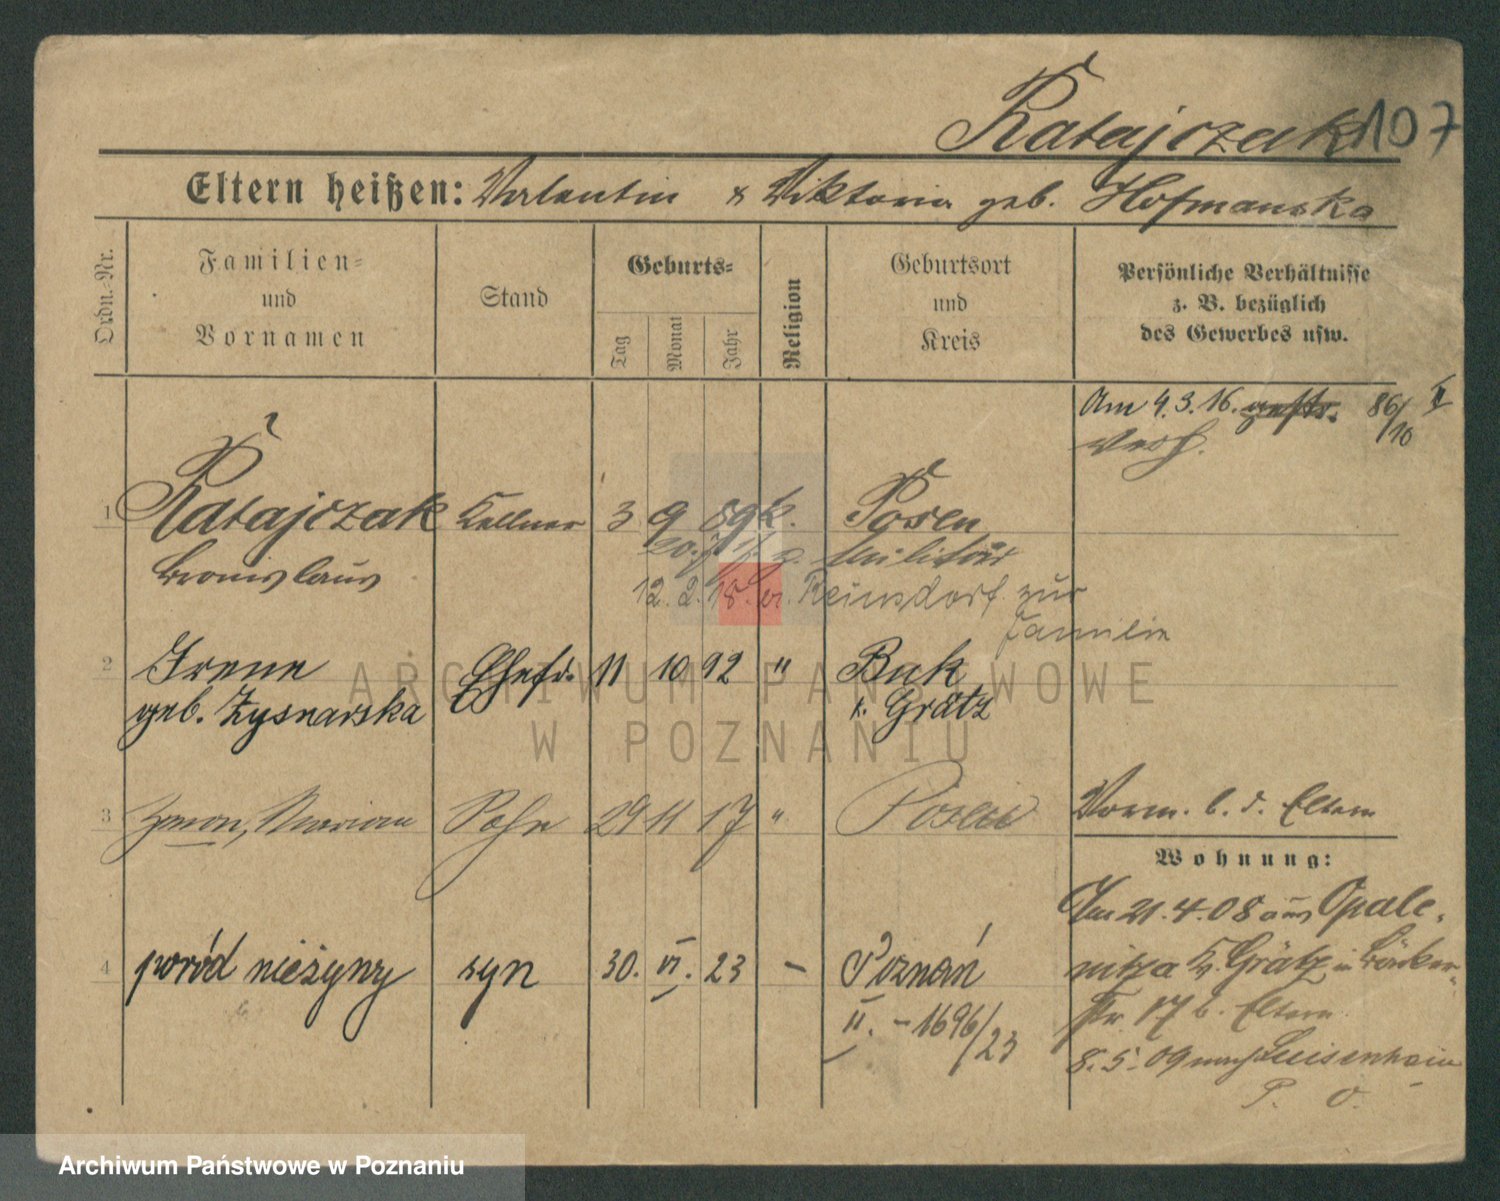 Ratajczak 107
Eltern heißen: Valentin & Viktoria geb. Hofmanska
Ordn.-Nr.
Familien-
und
Vornamen
Stand
Geburts-
Tag
Monat
Jahr
Religion
Geburtsort
und
Kreis
Persönliche Verhältnisse
z. B. bezüglich
des Gewerbes usw.
Am 4.3.16. gestr. 86/10 II
verh.
1 Ratajczak Kellner 3 9 89 k. Posen
Bronislaus
z. Militär
12.2.18. v. Reinsdorf zur
Familie
2 Irene Ehefr. 11 10 92 " Buk
geb. Zysnarska k. Grätz
3 Marian Sohn 29 11 17 " Posen
Vorm. b. d. Eltern
Wohnung:
Am 21.4.08 aus Opale-
nitza K. Grätz in Bäcker-
str 17 b. Eltern
8.5.09 nach Luisenhain
P. O.
4 poród nieżywy syn 30. VI. 23 – Poznań
II. – 1696/23
ARCHIWUM PAŃSTWOWE
W POZNANIU
Archiwum Państwowe w Poznaniu